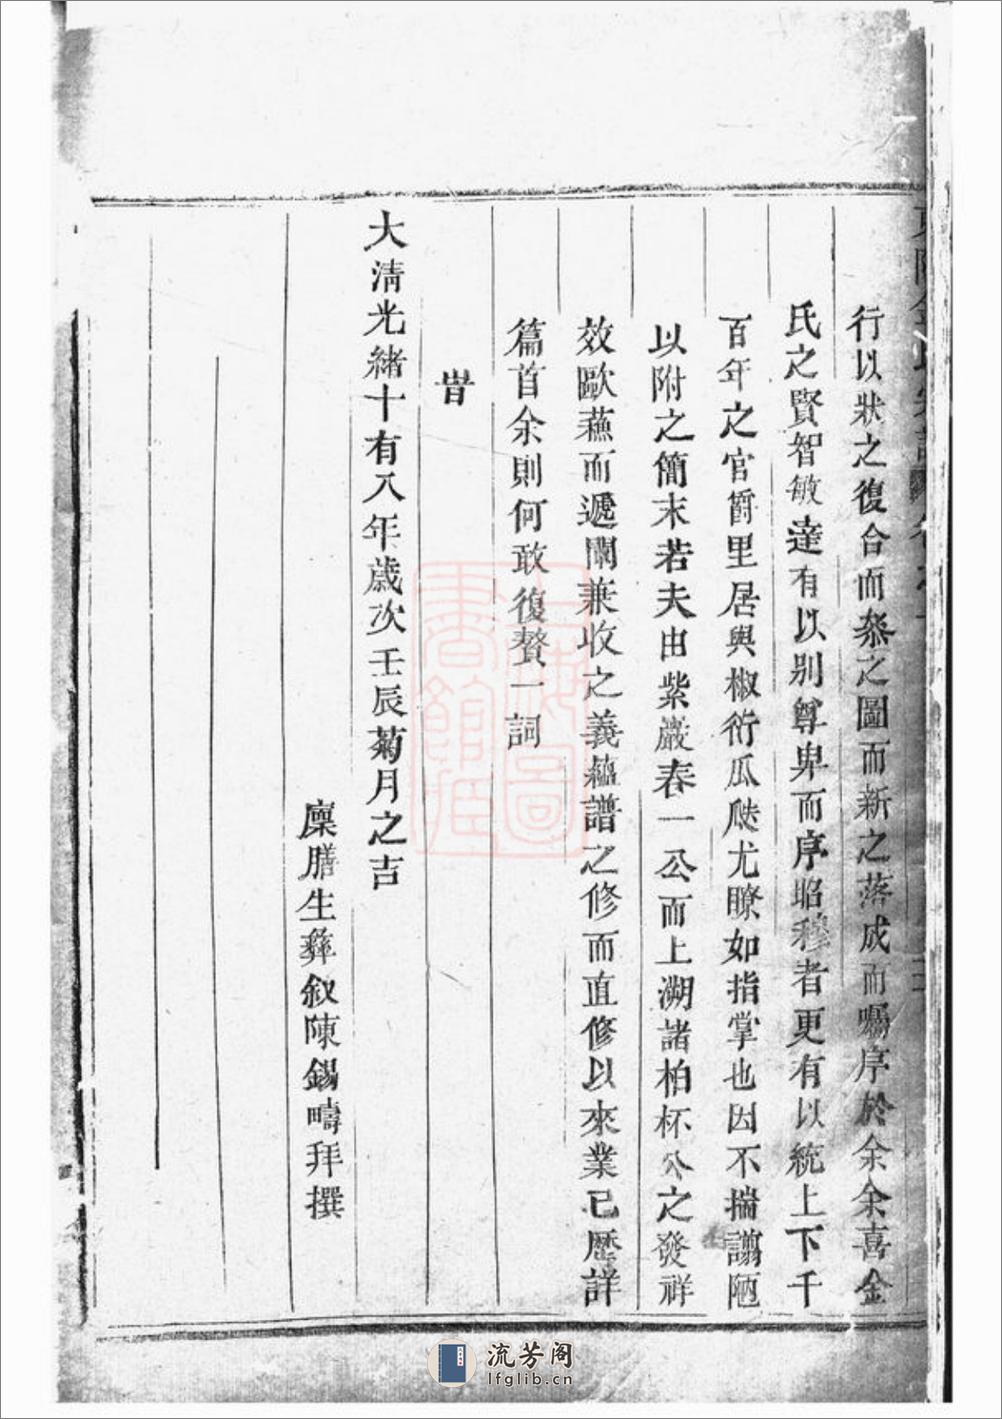 行以狀之復合而叅之圖而新之落成而囑序於余余喜金
氏之賢智敏達有以别尊卑而序昭穆者更有以統上下千
百年之官爵里居與椒衍瓜瓞尤瞭如指掌也因不揣譾陋
以附之簡末若夫由紫巖春一公而上溯諸柏杯公之發祥
效歐蘓而遞闡兼收之義蘊譜之修而直修以來業已歷詳
篇首余則何敢復贅一詞
旹
大淸光緒十有八年歲次壬辰菊月之吉
廩膳生彝叙陳錫疇拜撰
上海圖書館藏
流芳阁
lfglib.cn